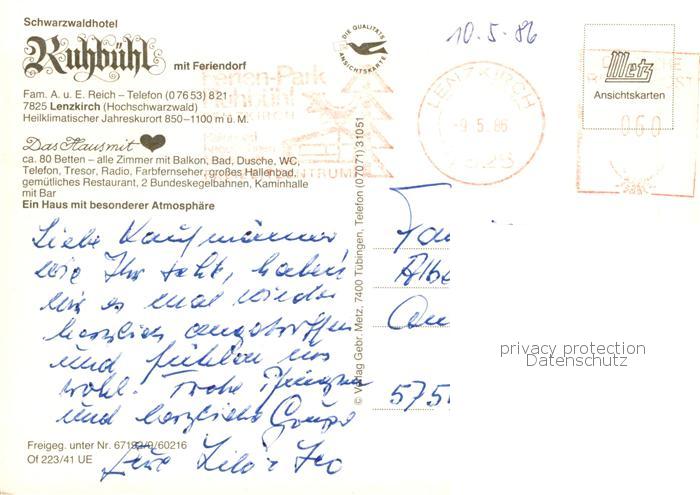 Schwarzwaldhotel
Ruhbühl mit Feriendorf
Fam. A. u. E. Reich – Telefon (07653) 821
7825 Lenzkirch (Hochschwarzwald)
Heilklimatischer Jahreskurort 850–1100 m ü. M.
Das Haus mit
ca. 80 Betten – alle Zimmer mit Balkon, Bad, Dusche, WC,
Telefon, Tresor, Radio, Farbfernseher, großes Hallenbad,
gemütliches Restaurant, 2 Bundeskegelbahnen, Kaminhalle
mit Bar
Ein Haus mit besonderer Atmosphäre
Liebe Kaufmänner,
wie Ihr seht, haben
wir es mal wieder
herzlich angetroffen
und fühlen uns
wohl. Frohe Pfingsten
und herzliche Grüße
Eure
Freigeg. unter Nr. 67192/9/60216
Of 223/41 UE
DIE QUALITÄTS
ANSICHTSKARTE
Ferien-Park
Ruhbühl
LENZKIRCH
© Verlag Gebr. Metz, 7400 Tübingen, Telefon (07071) 31051
10.5.86
LENZKIRCH
-9.5.86
7825
Metz
Ansichtskarten
060
Fam
Albe
575
privacy protection
Datenschutz